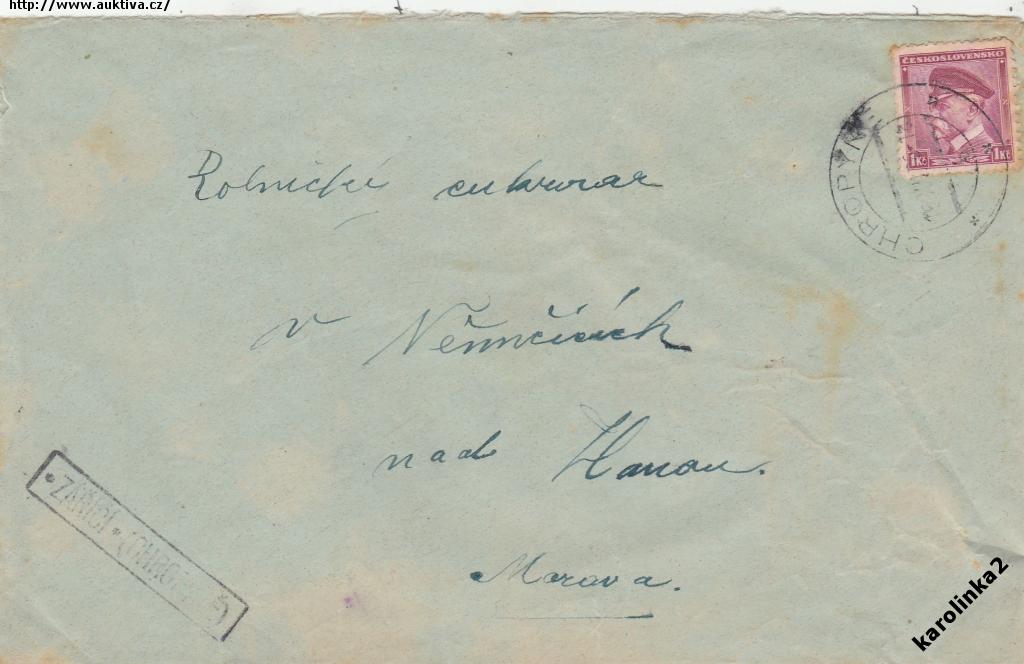 http://www.auktiva.cz/
ČESKOSLOVENSKO
1Kč 1Kč
CHROPYNĚ
Rolnický cukrovar
v Němčicích
nad Hanou.
Morava.
karolinka2